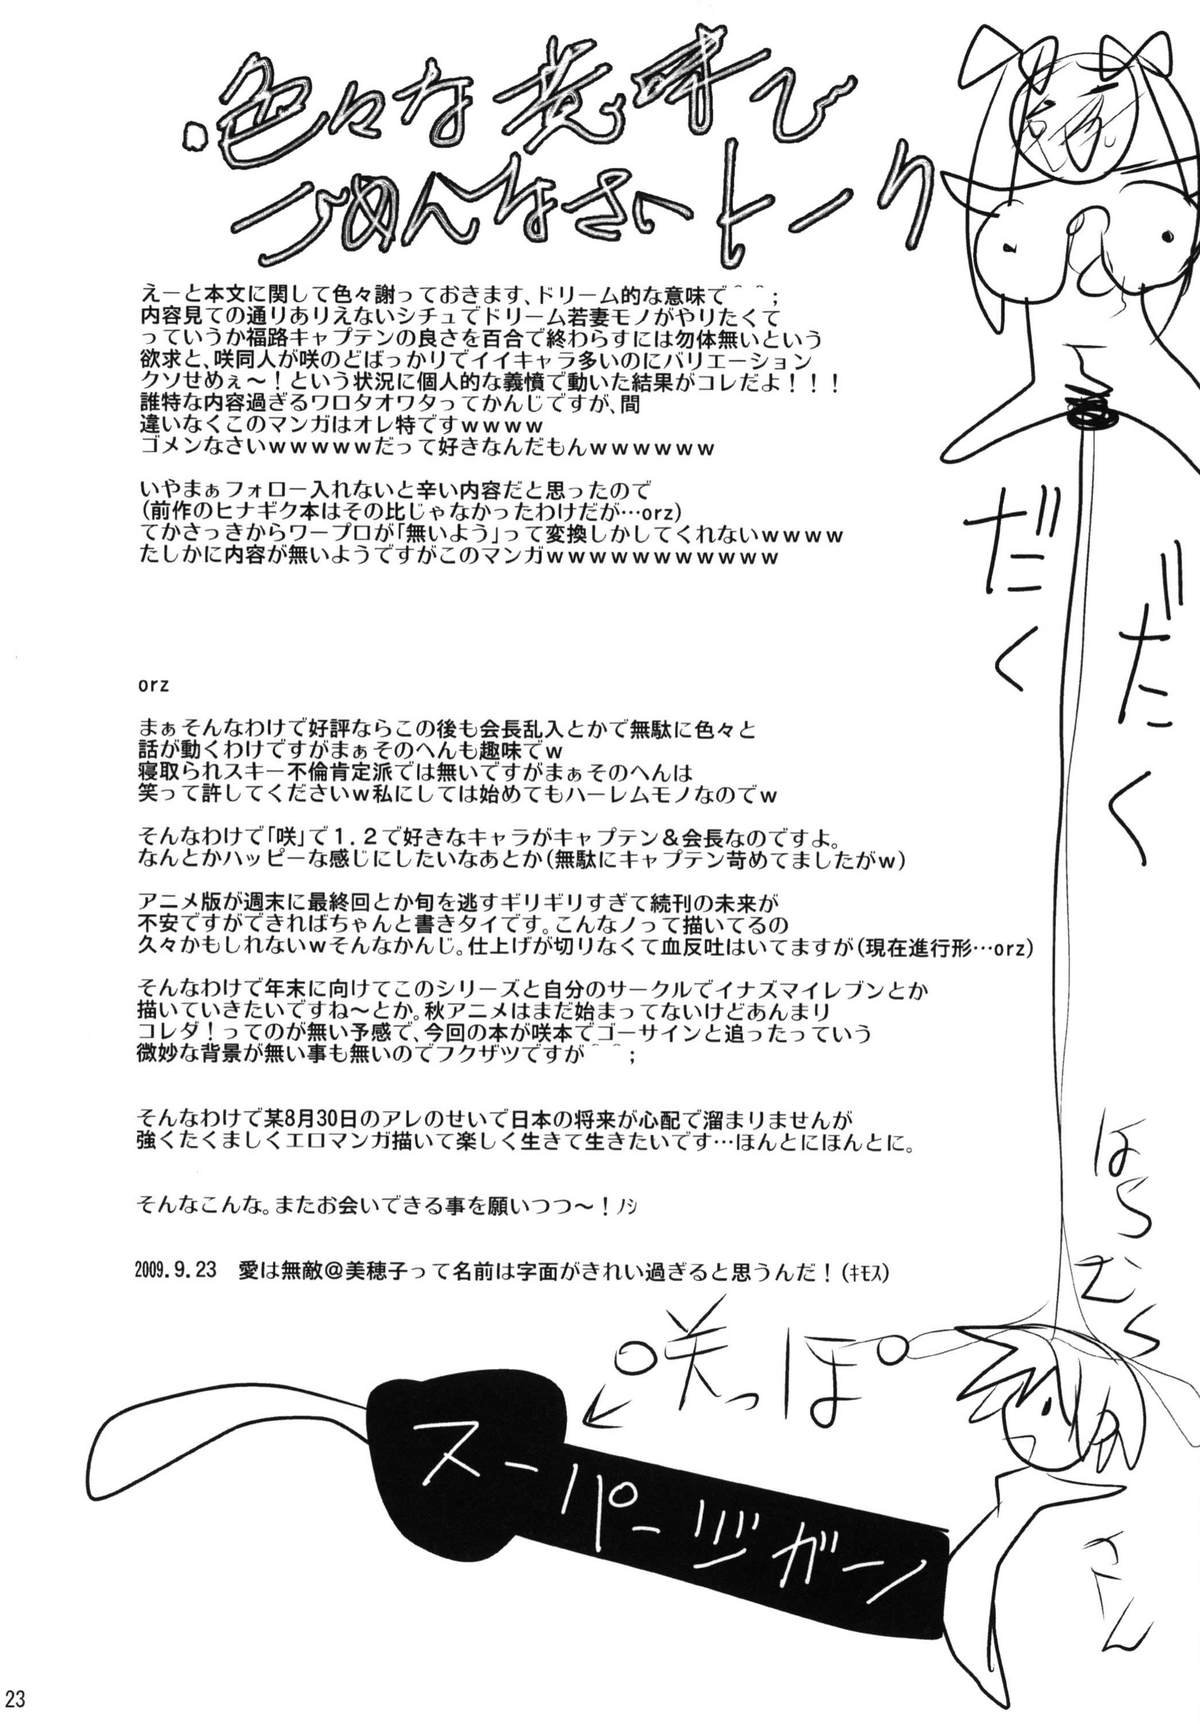 ・色々な意味で
ごめんなさいトーク
えーと本文に関して色々謝っておきます、ドリーム的な意味で＾＾；
内容見ての通りありえないシチュでドリーム若妻モノがやりたくて
っていうか福路キャプテンの良さを百合で終わらすには勿体無いという
欲求と、咲同人が咲のどばっかりでイイキャラ多いのにバリエーション
クソせめぇ～！という状況に個人的な義憤で動いた結果がコレだよ！！！
誰特な内容過ぎるワロタオワタってかんじですが、間
違いなくこのマンガはオレ特ですｗｗｗｗ
ゴメンなさいｗｗｗｗｗだって好きなんだもんｗｗｗｗｗｗ
いやまぁフォロー入れないと辛い内容だと思ったので
(前作のヒナギク本はその比じゃなかったわけだが…orz)
てかさっきからワープロが「無いよう」って変換しかしてくれないｗｗｗｗ
たしかに内容が無いようですがこのマンガｗｗｗｗｗｗｗｗｗｗｗ
orz
まぁそんなわけで好評ならこの後も会長乱入とかで無駄に色々と
話が動くわけですがまぁそのへんも趣味でｗ
寝取られスキー不倫肯定派では無いですがまぁそのへんは
笑って許してくださいｗ私にしては始めてもハーレムモノなのでｗ
そんなわけで「咲」で１.２で好きなキャラがキャプテン＆会長なのですよ。
なんとかハッピーな感じにしたいなあとか(無駄にキャプテン苛めてましたがｗ)
アニメ版が週末に最終回とか旬を逃すギリギリすぎて続刊の未来が
不安ですができればちゃんと書きタイです。こんなノって描いてるの
久々かもしれないｗそんなかんじ。仕上げが切りなくて血反吐はいてますが(現在進行形…orz)
そんなわけで年末に向けてこのシリーズと自分のサークルでイナズマイレブンとか
描いていきたいですね～とか。秋アニメはまだ始まってないけどあんまり
コレダ！ってのが無い予感で、今回の本が咲本でゴーサインと追ったっていう
微妙な背景が無い事も無いのでフクザツですが＾＾；
そんなわけで某8月30日のアレのせいで日本の将来が心配で溜まりませんが
強くたくましくエロマンガ描いて楽しく生きて生きたいです…ほんとにほんとに。
そんなこんな。またお会いできる事を願いつつ～！ﾉｼ
2009.9.23　愛は無敵＠美穂子って名前は字面がきれい過ぎると思うんだ！(ｷﾓｽ)
だく
だく
はらむら
さん
咲っぽ
スーパージガーン
23